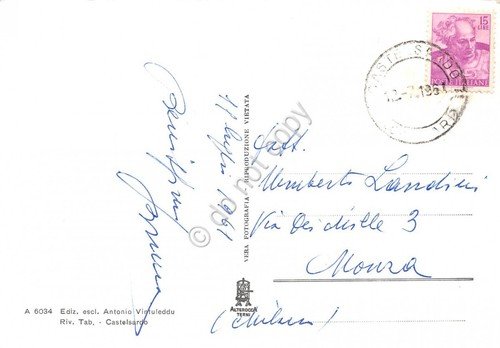 15
LIRE
POSTE ITALIANE
CASTELSARDO
12-7.1961
11 luglio 1961
Dott.
Umberto Landini
Via Dei Mille 3
Monza
(Milano)
VERA FOTOGRAFIA - RIPRODUZIONE VIETATA
© do not copy
ALTEROCCA
TERNI
A 6034 Ediz. escl. Antonio Vintuleddu
Riv. Tab. - Castelsardo